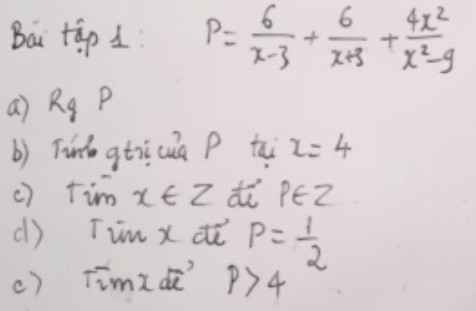 Bài tập 1: P = 6/(x-3) + 6/(x+3) + 4x²/(x²-9)
a) Rg P
b) Tính gtrị của P tại x = 4
c) Tìm x ∈ Z để P ∈ Z
d) Tìm x để P = 1/2
e) Tìm x để P > 4